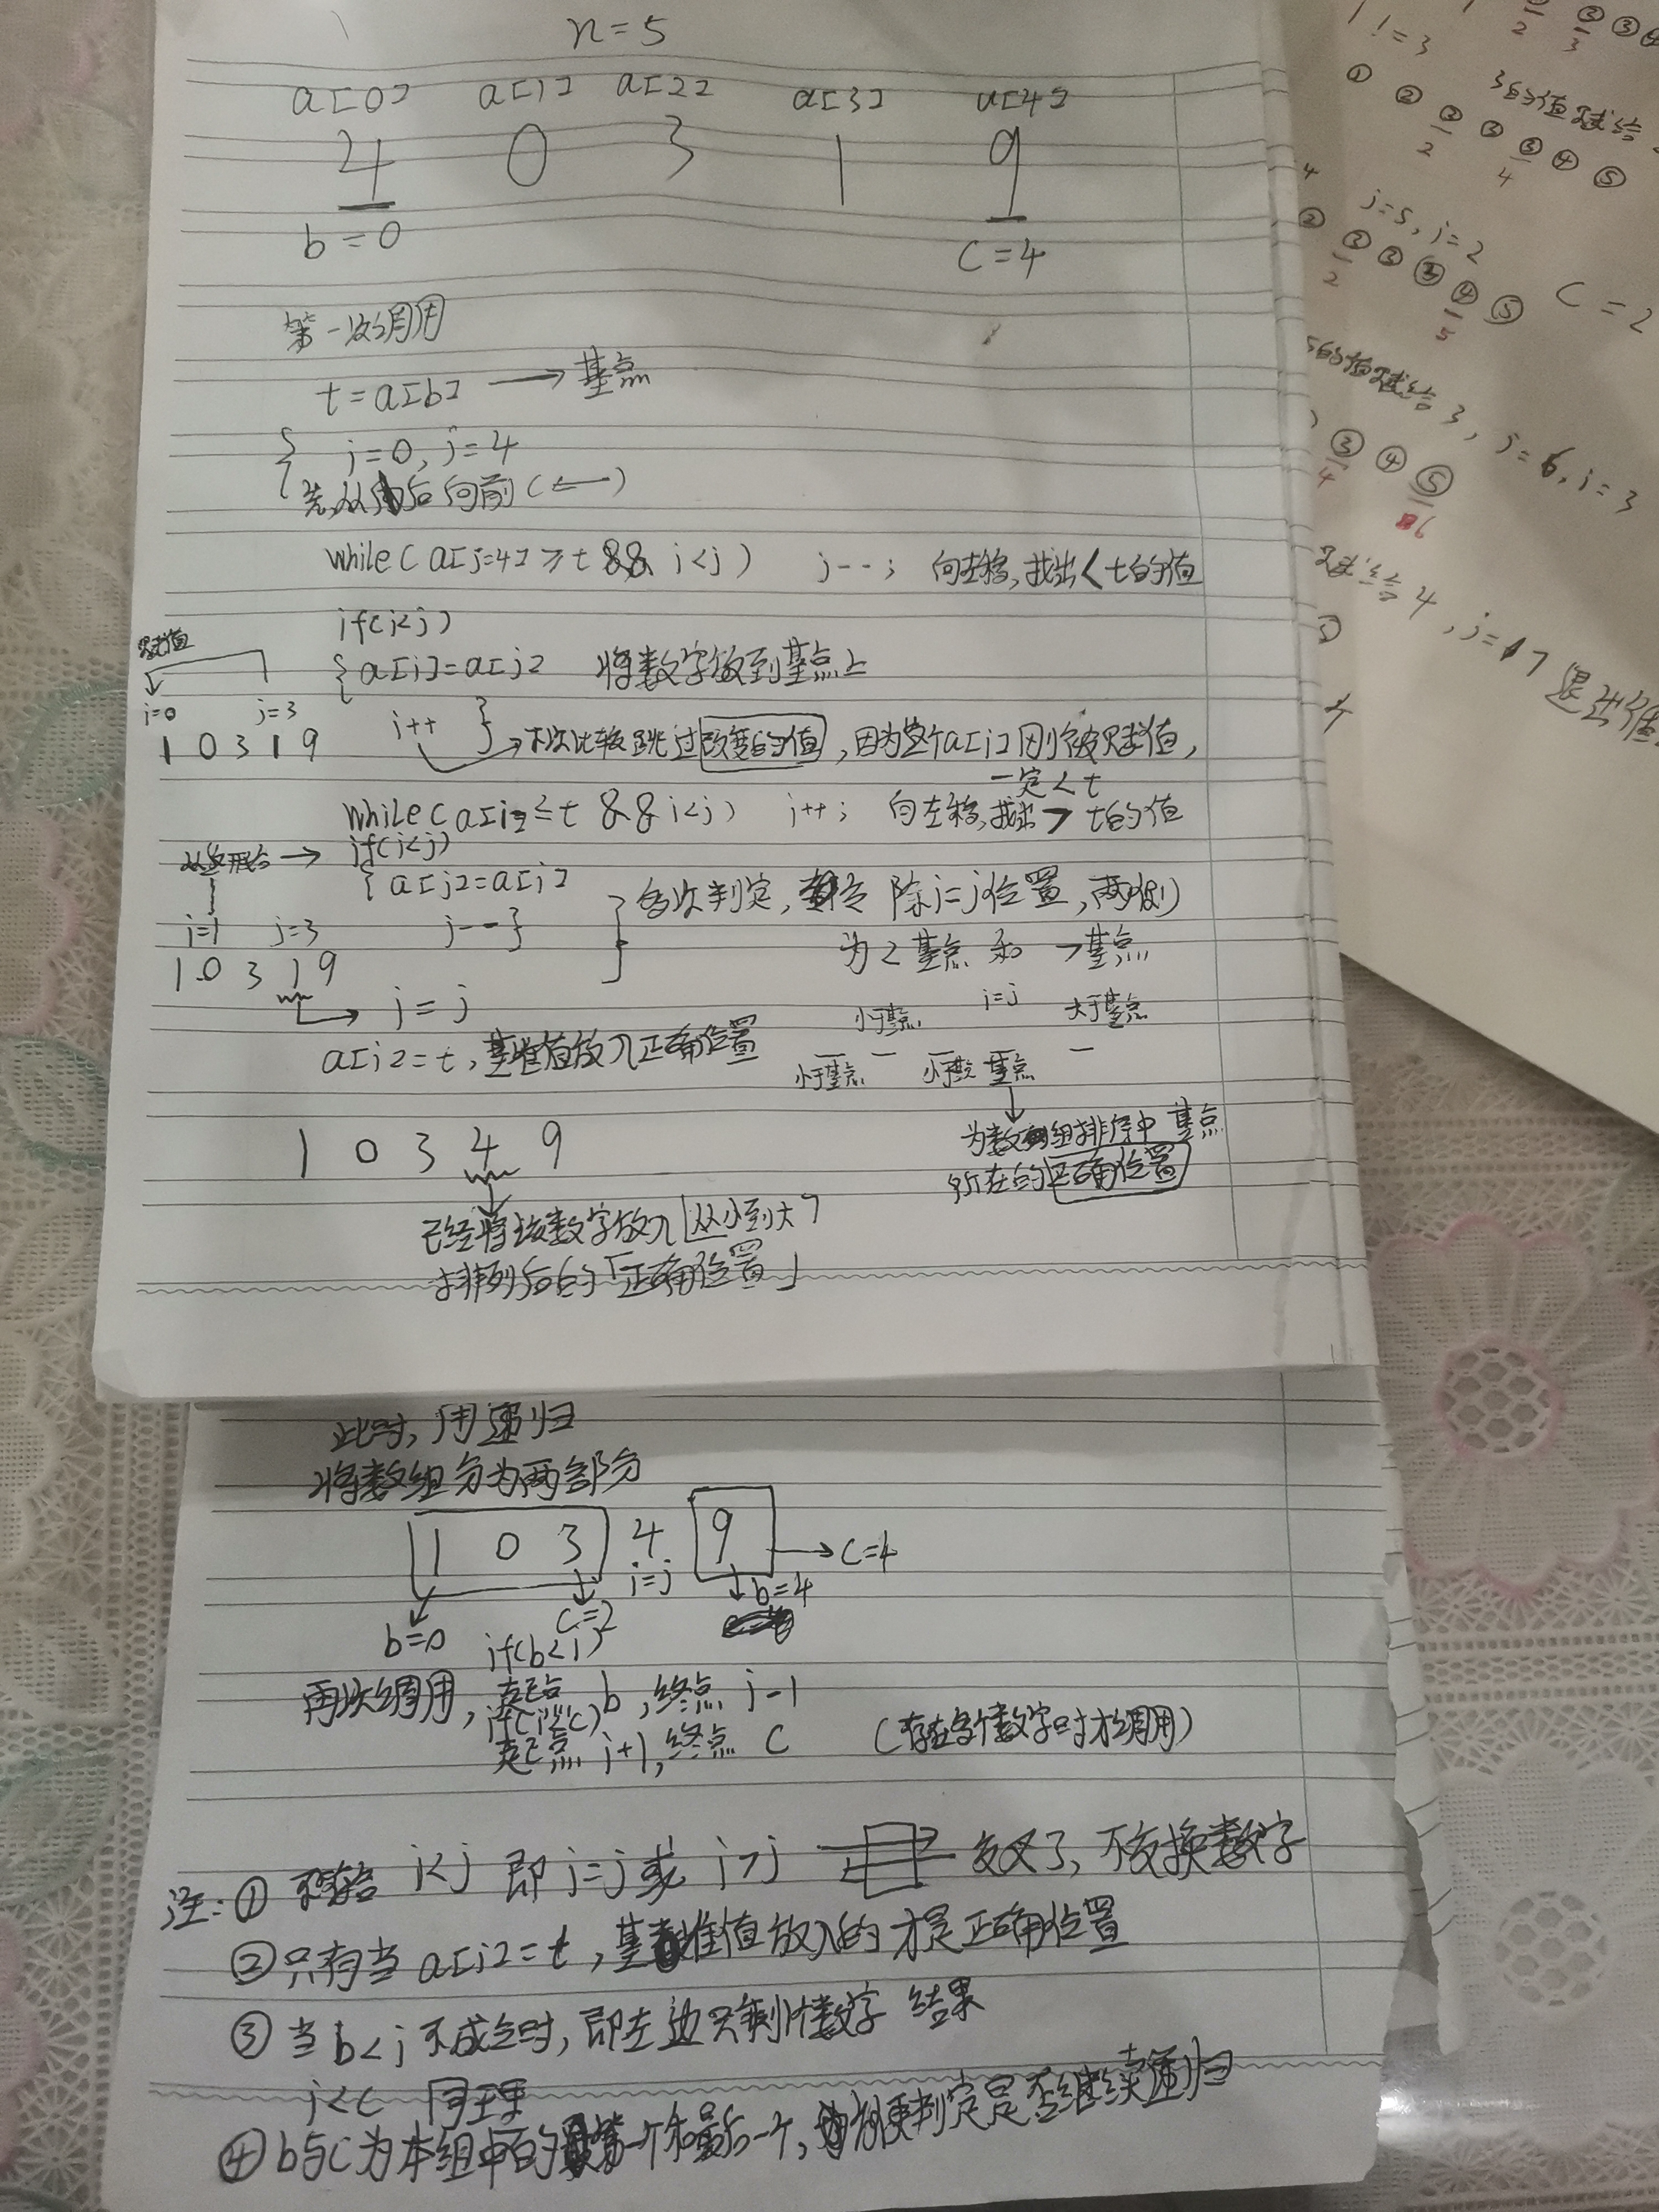 n=5
a[0] a[1] a[2] a[3] a[4]
4 0 3 1 9
b=0 c=4
第一次调用
t=a[b] → 基点
i=0, j=4
先从后向前(←)
while(a[j=4]≥t && i<j) j--; 向左移,找出<t的值
if(i<j)
{a[i]=a[j] 将数字放到基点上
赋值
i=0 j=3
i++ }
1 0 3 1 9
下次比较跳过改变的值,因为整个a[i]刚被赋值,
一定<t
while(a[i]≤t && i<j) i++; 向左移,找出>t的值
从这开始 → if(i<j)
{a[j]=a[i]
j--}
i=1 j=3
1 0 3 1 9
多次判定, 除i=j位置,两侧
为<基点 和 >基点
i=j
a[i]=t,基准值放入正确位置
小于基点 i=j 大于基点
小于基点 小于基点 基点
为数组排序中基点
所在的正确位置
1 0 3 4 9
已经将该数字放入「从小到大」
排列后的「正确位置」
此时,用递归
将数组分为两部分
1 0 3 4 9 → c=4
i=j
b=0 c=2 b=4
if(b<i)
再次调用, 起点 b,终点 j-1
if(i<c)
起点 j+1,终点 c (存在多个数字时才调用)
注:① i<j 即i=j或 i>j 交叉了,不交换数字
②只有当a[i]=t,基准值放入的才是正确位置
③当b<i不成立时,即左边只剩1个数字 结果
i<c 同理
④b与c为本组中的第一个和最后一个,方便判定是否继续递归
1!=3
2 3
① ② ② ③ ③ ④ ⑤
2 4
3的值赋给
j=5, i=2
② ② ③ ③ ④ ⑤
2 5
C=2
5的值赋给3, j=6, i=3
③ ④ ⑤
4 6
赋给4, j=7退出